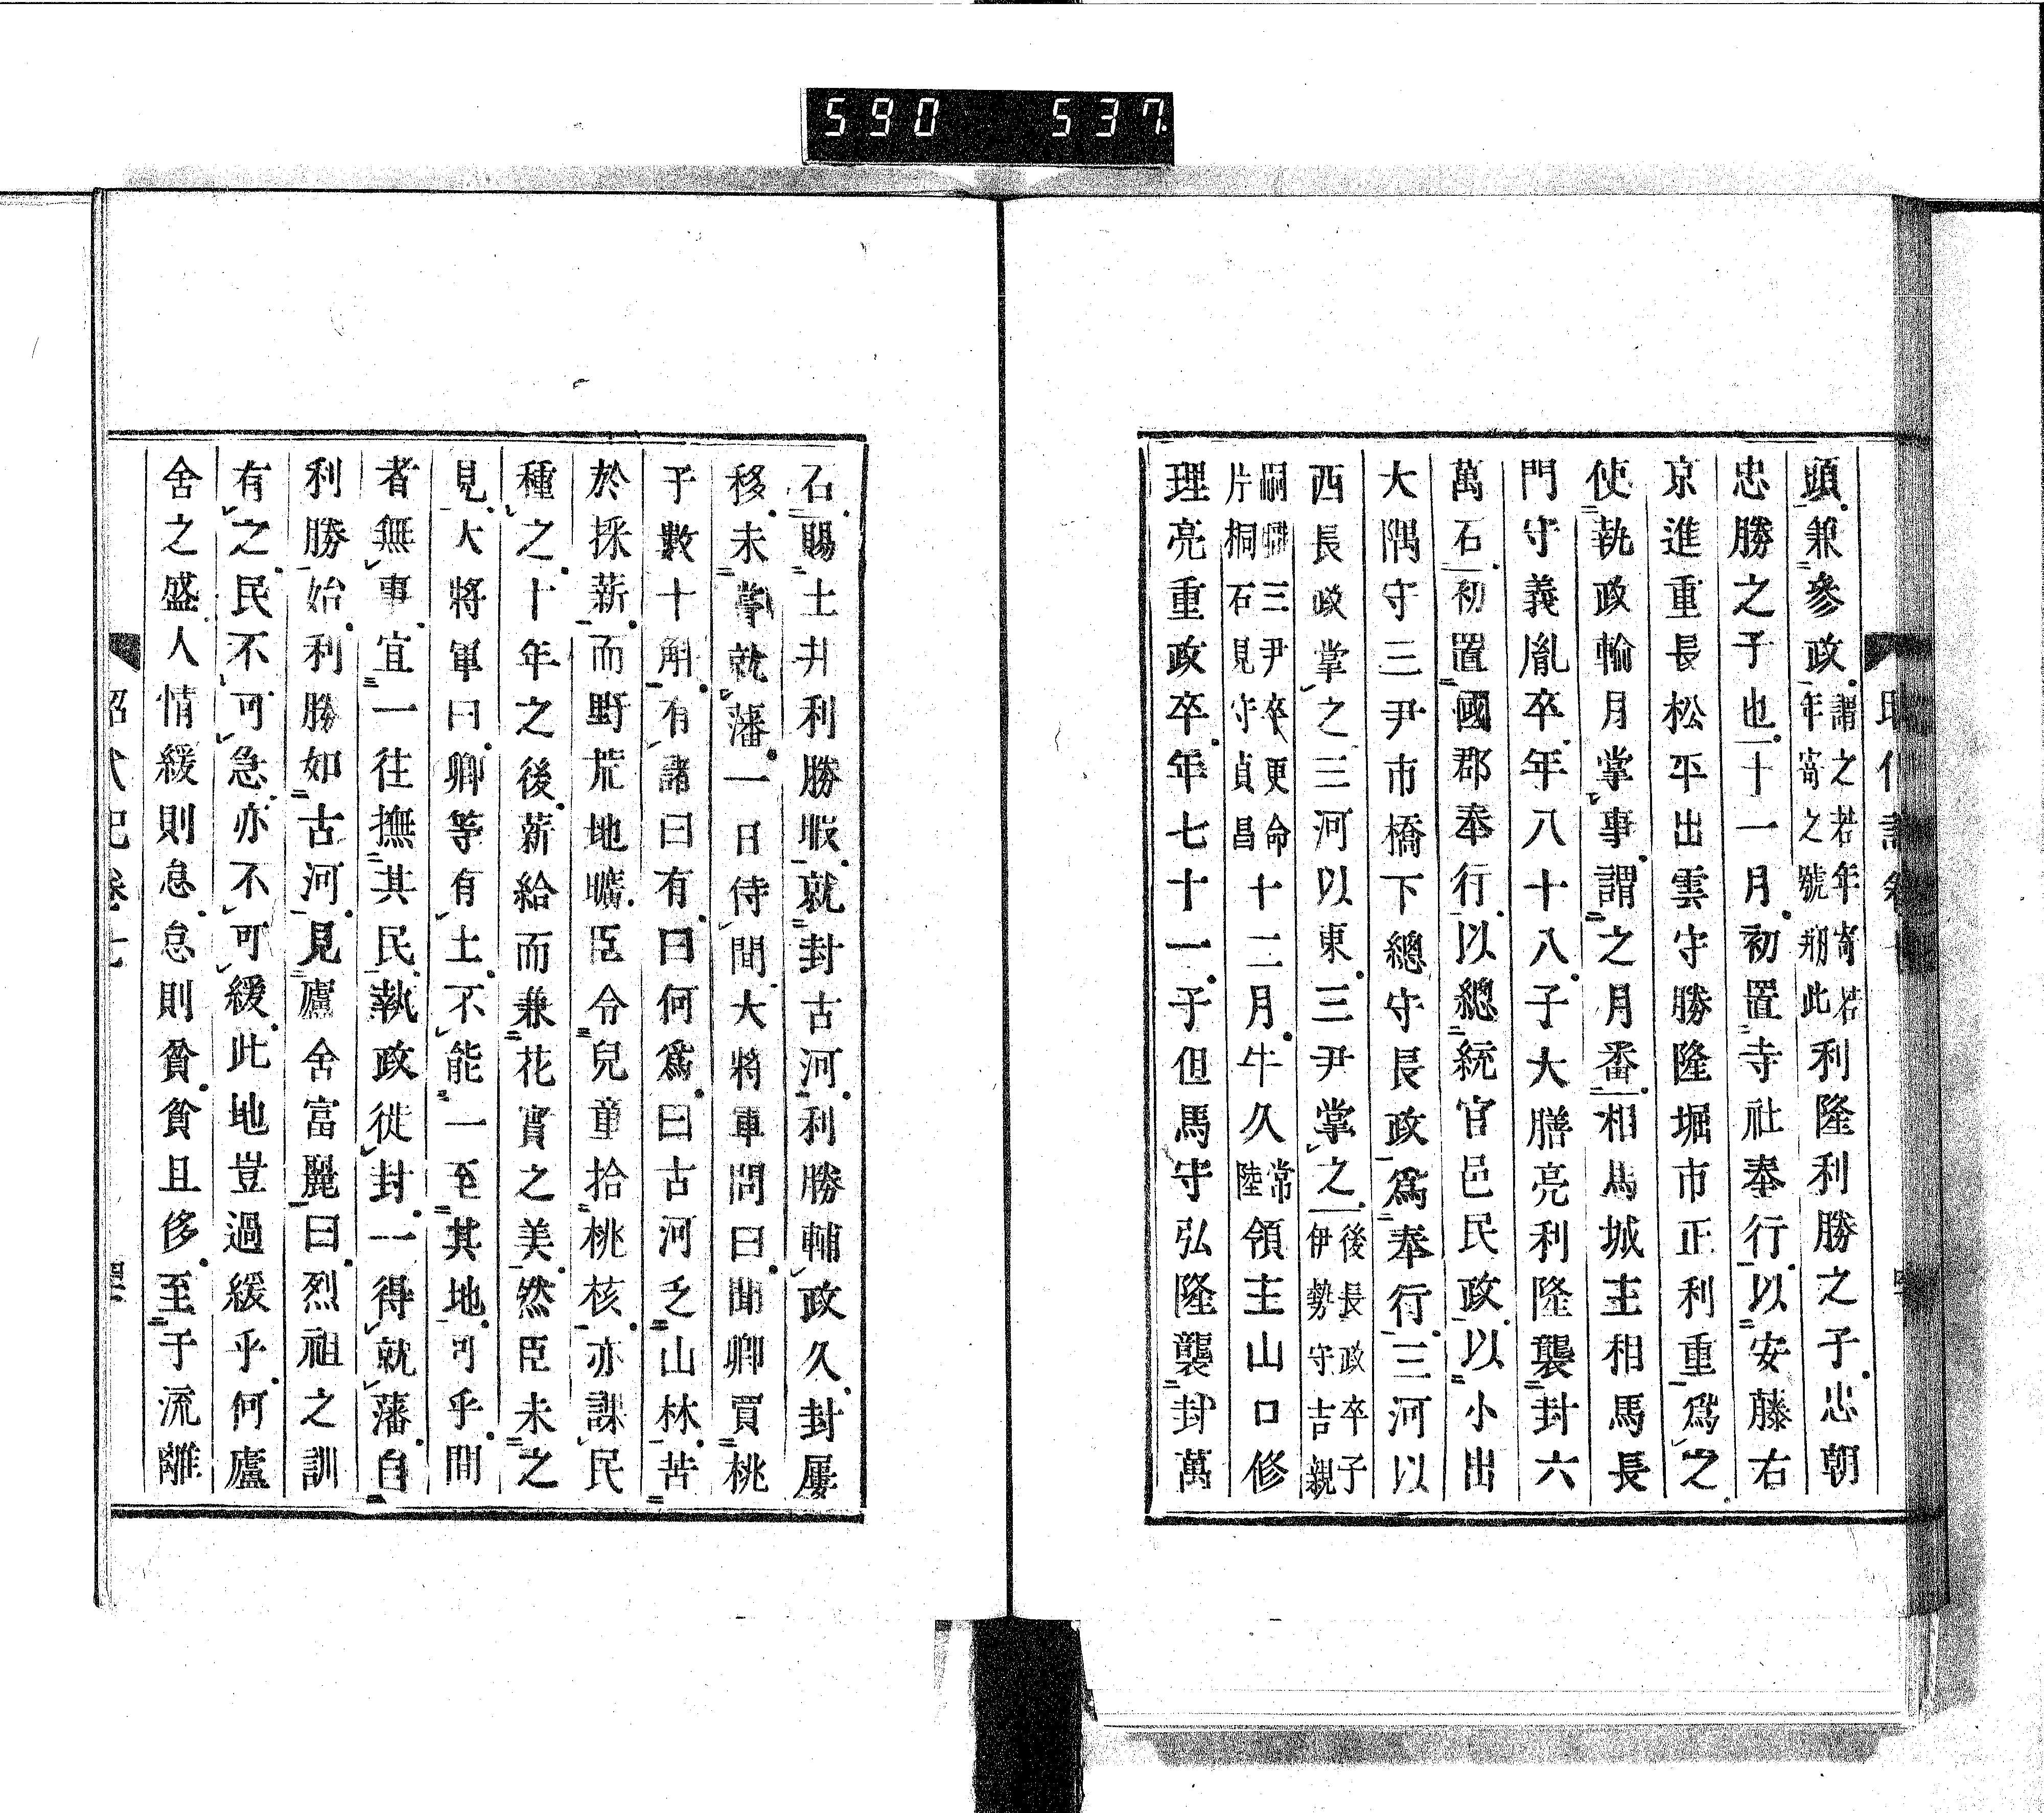 590 537
頭兼參政謂之若年寄若年寄之號刱此利隆利勝之子忠朝
忠勝之子也十一月初置寺社奉行以安藤右
京進重長松平出雲守勝隆堀市正利重爲之
使執政輪月掌事謂之月番相馬城主相馬長
門守義胤卒年八十八子大膳亮利隆襲封六
萬石初置國郡奉行以總統官邑民政以小出
大隅守三尹市橋下總守長政爲奉行三河以
西長政掌之三河以東三尹掌之後長政卒子伊勢守吉親
嗣職三尹卒更命片桐石見守貞昌十二月牛久常陸領主山口修
理亮重政卒年七十一子但馬守弘隆襲封萬
石賜土井利勝暇就封古河利勝輔政久封屢
移未掌就藩一日侍間大將軍問曰聞卿買桃
子數十斛有諸曰有曰何爲曰古河乏山林苦
於採薪而野荒地曠臣令兒童拾桃核亦課民
種之十年之後薪給而兼花實之美然臣未之
見大將軍曰卿等有土不能一至其地可乎間
者無事宜一往撫其民執政徙封一得就藩自
利勝始利勝如古河見廬舍富麗曰烈祖之訓
有之民不可急亦不可緩此地豈過緩乎何廬
舍之盛人情緩則怠怠則貧貧且侈至于流離